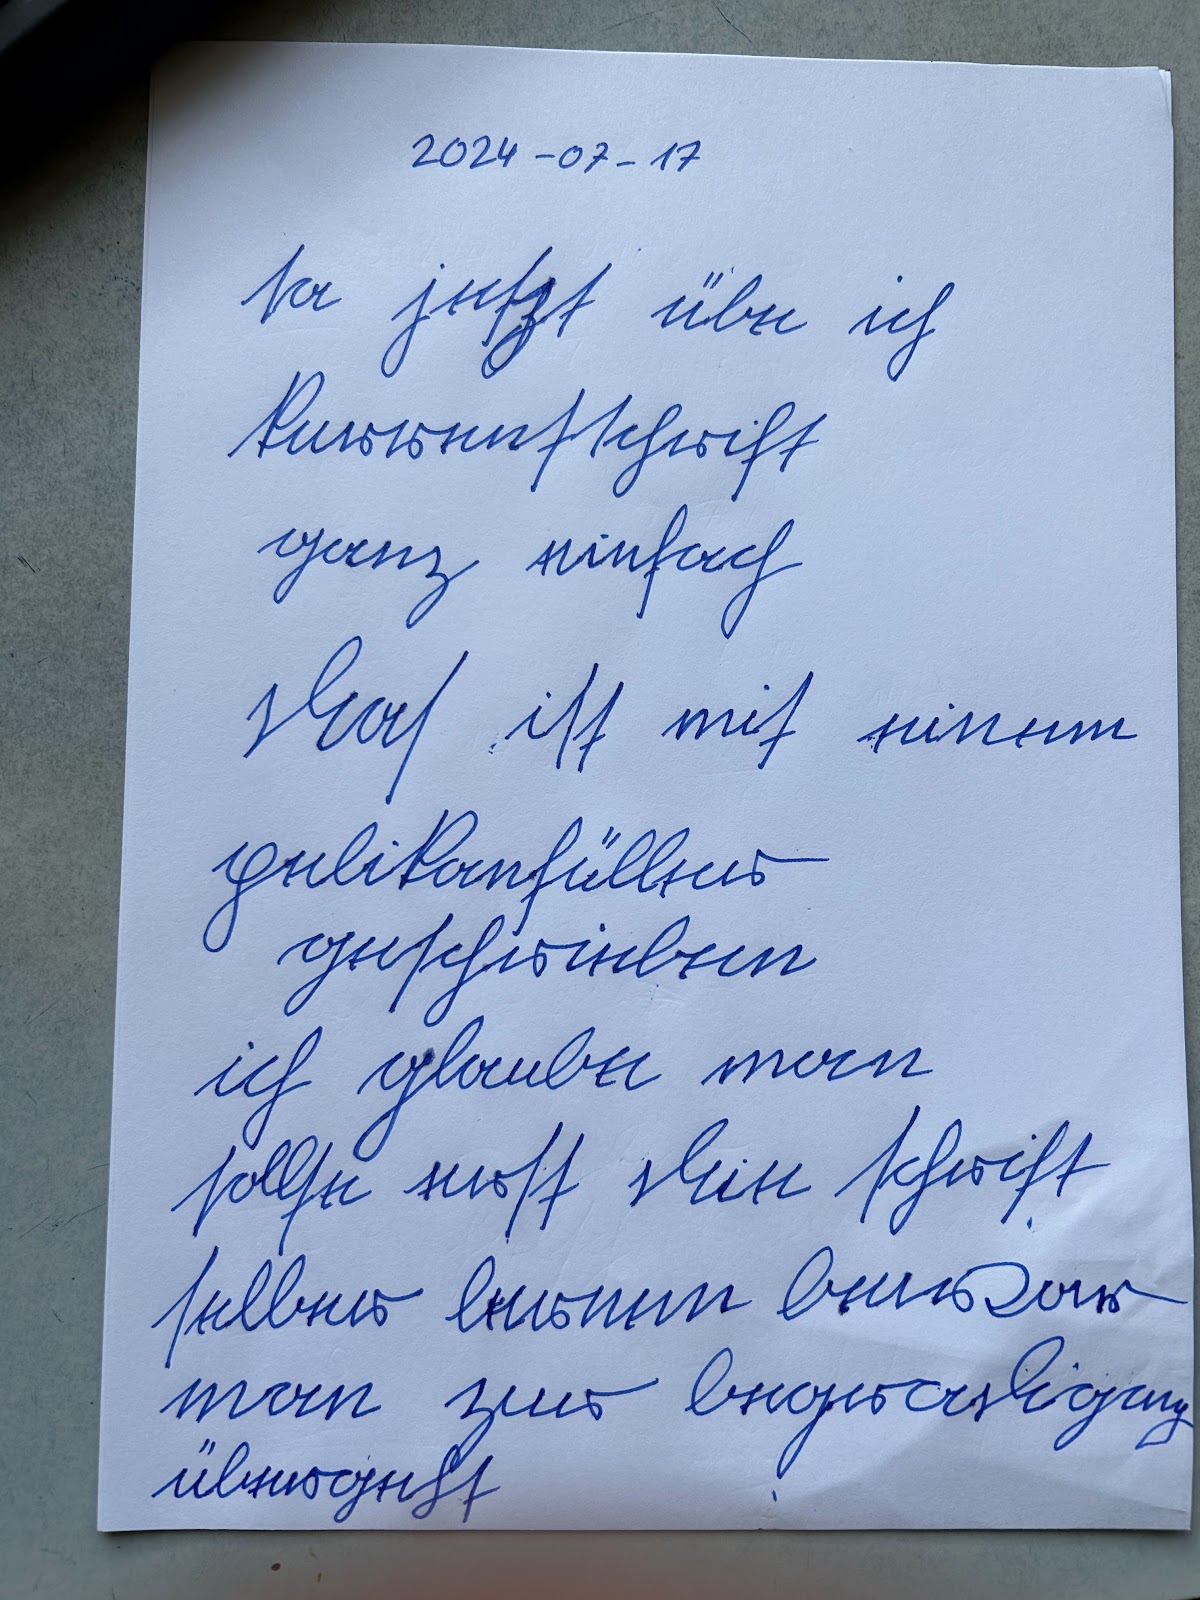 2024-07-17
so jetzt übe ich
Kurrentschrift
ganz einfach
das ist mit einem
pelikanfüller
geschrieben
ich glaube man
sollte erst die schrift
selber lernen bevor
man zur begradigung
übergeht